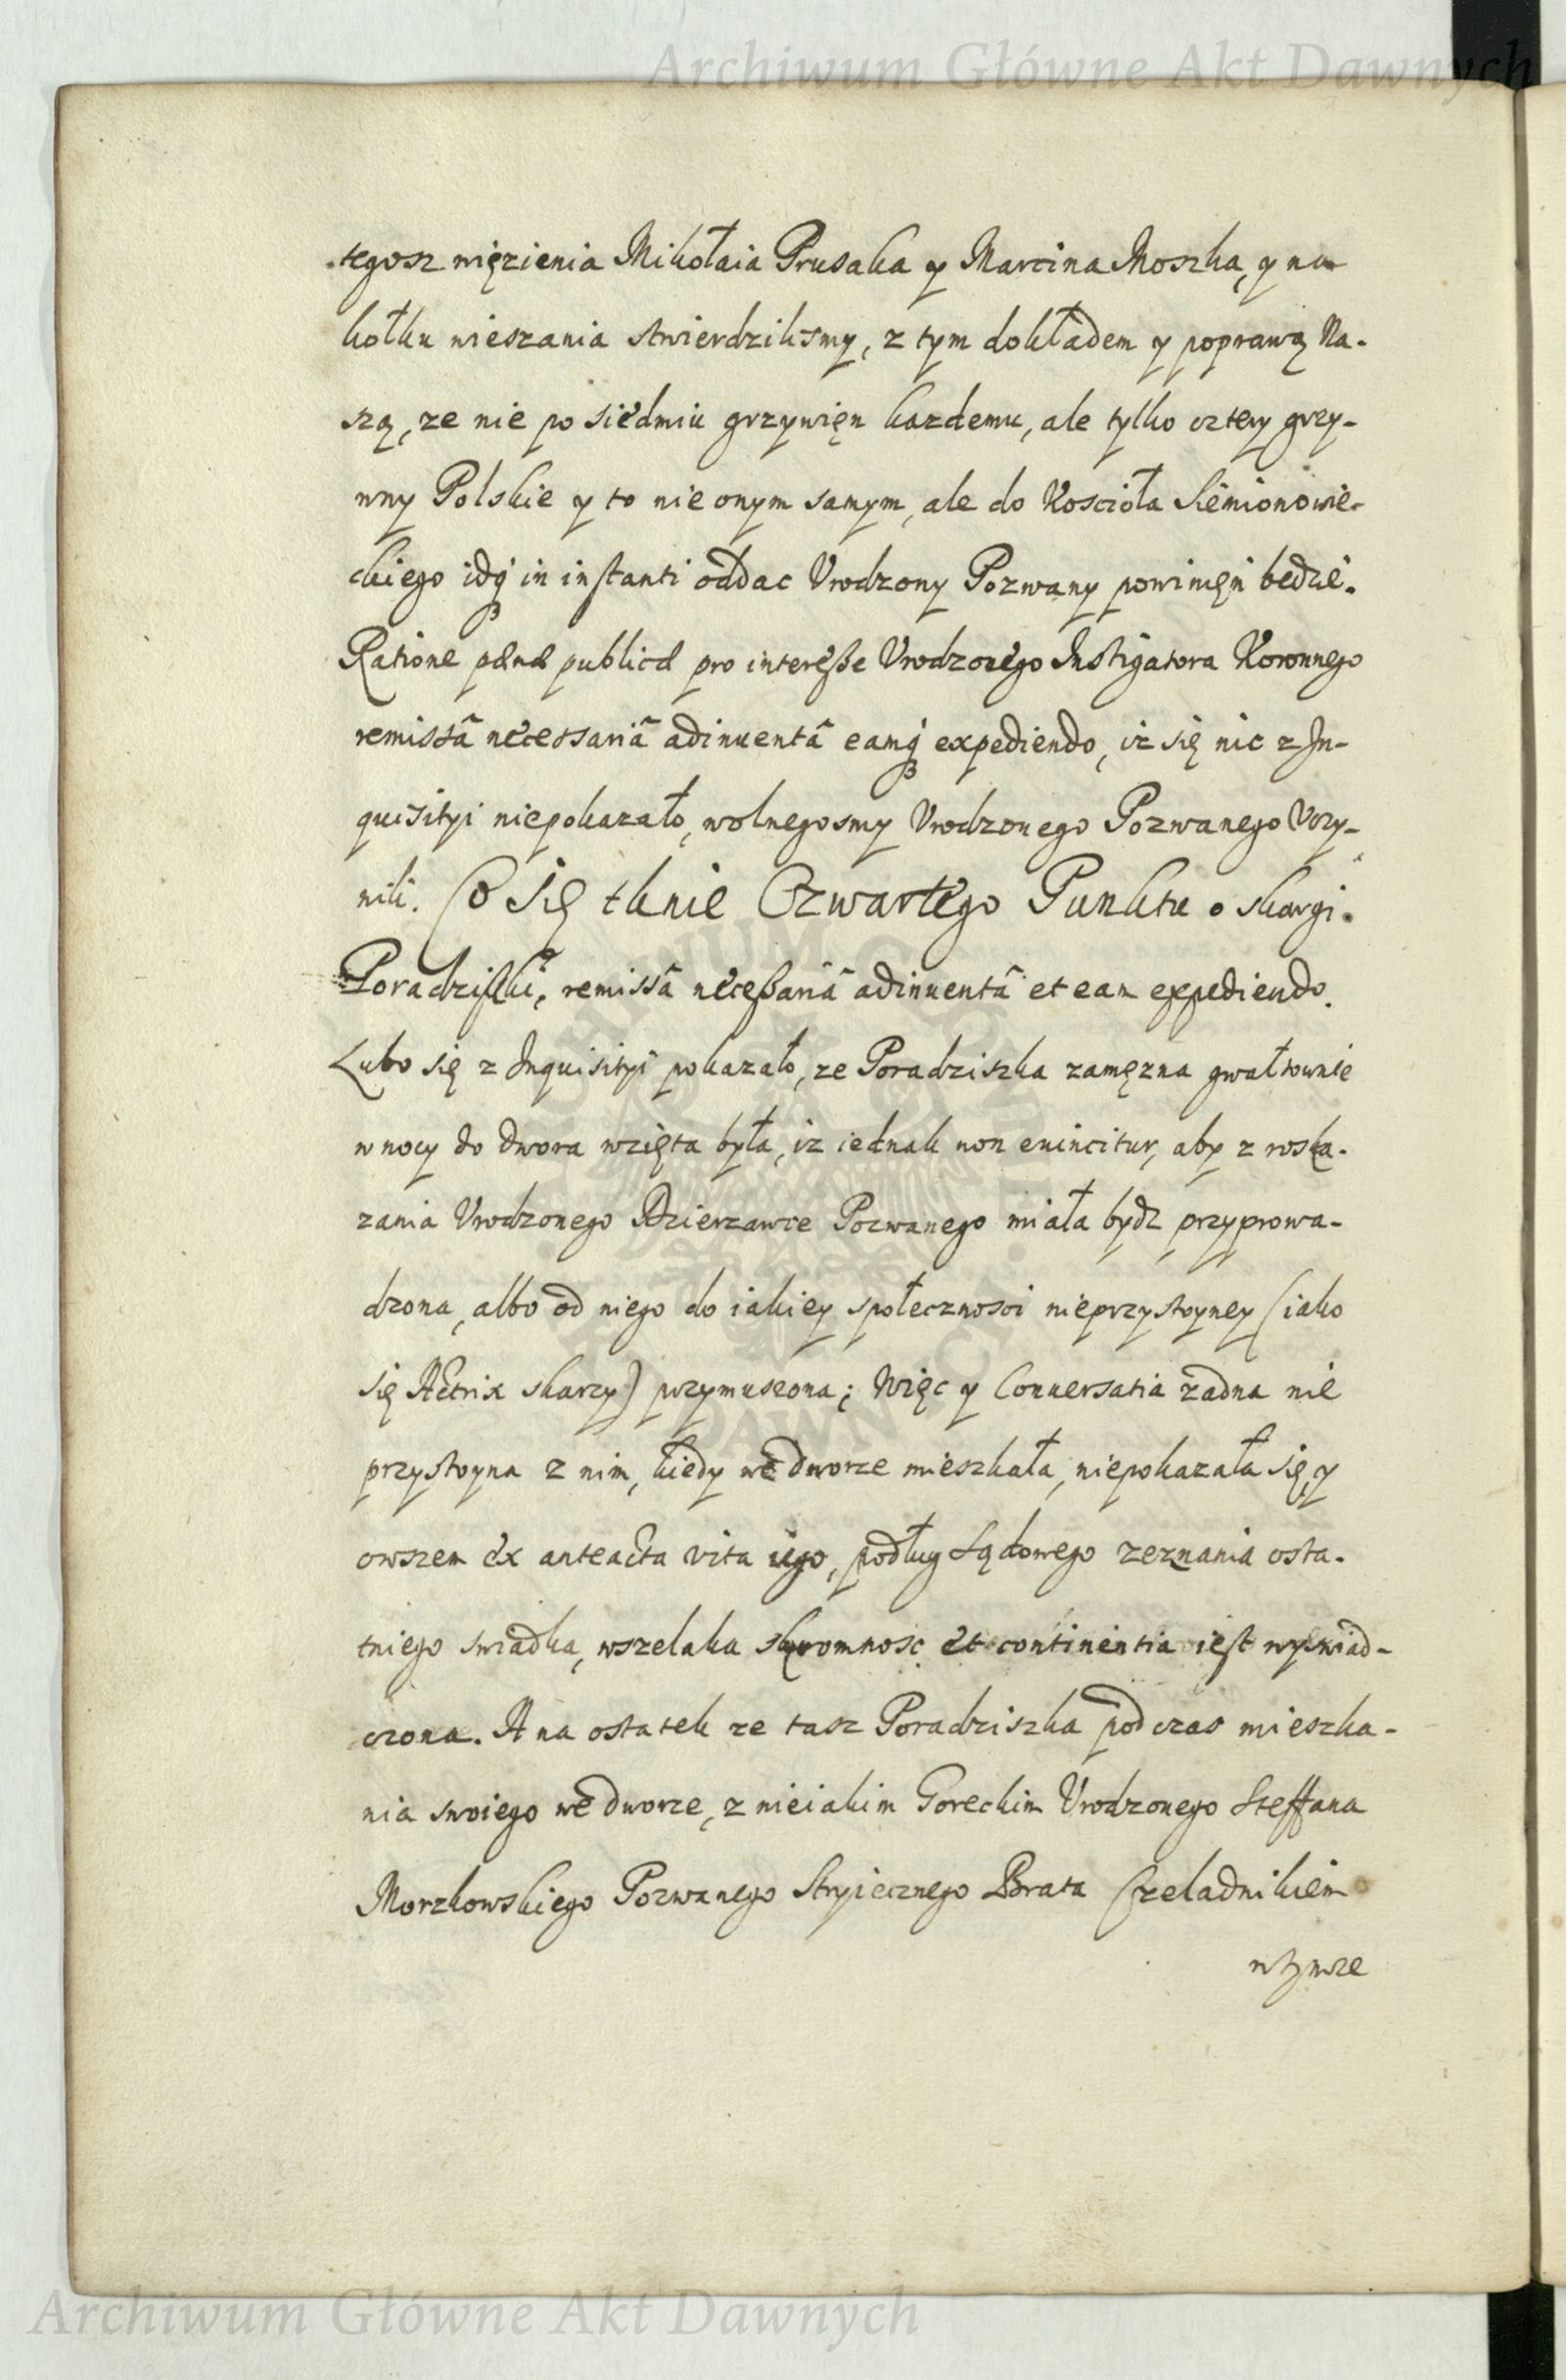 Archiwum Główne Akt Dawnych
tegosz więzienia Mikołaia Prusaka y Marcina Moszka, y na
kołku wieszania stwierdzilismy, z tym dokładem y poprawą Na-
szą, ze nie po siedmiu grzywięn kazdemu, ale tylko cztery grzy-
wny Polskie y to nie onym samym, ale do Koscioła Siemionowie-
ckiego idq́ in instanti oddac Vrodzony Pozwany powinięn bedzie.
Ratione pænæ publicæ pro interesse Vrodzonego Instigatora Koronnego
remissâ necessariâ adinuentâ eamq́ expediendo, iz się nic z In-
quisityi niepokazało, wolnegosmy Vrodzonego Pozwanego Vczy-
nili. Co się tknie Czwartego Punktu o skargi
Poradziszki, remissâ necessariâ adinuentâ et eam expediendo.
Lubo się z Inquisityi pokazało, ze Poradziszka zamęzna gwałtownie
w nocy do dwora wzięta była, iz iednak non euincitur, aby z roska-
zania Vrodzonego Dzierzawce Pozwanego miała bydz przyprowa-
dzona, albo od niego do iakiey społecznosci nieprzystoyney (iako
się Actrix skarzy) przymuszona; Więc y Conuersatia zadna nie
przystoyna z nim, kiedy we dworze mieszkała, niepokazała się, y
owszem ex anteacta vita iego, podług Sądowego zeznania osta-
tniego swiadka, wszelaka skromnosc et continentia iest wyswiad-
czona. A na ostatek ze tasz Poradziszka pod czas mieszka-
nia swoiego we dworze, z nieiakim Goreckim Vrodzonego Steffana
Morzkowskiego Pozwanego Stryiecznego Brata Czeladnikiem
Archiwum Główne Akt Dawnych